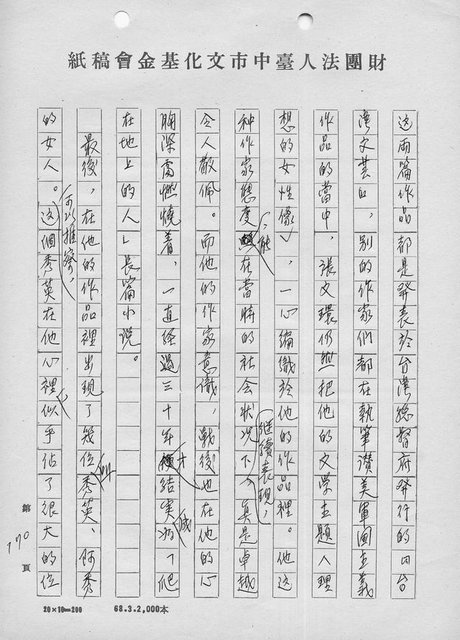 財團法人臺中市文化基金會稿紙
這兩篇作品都是發表於台灣總督府發行的「台
灣文芸」，別的作家們都在執筆讚美軍閥主義
作品的當中，張文環仍然把他的文學主題「理
想的女性像」，一心編織於他的作品裡。他這
種作家態度，能在當時的社會狀況下繼續表現，真是卓越
令人敬佩。而他的作家意識，戰後也在他的心
胸深處燃燒着，一直經過三十年才結實成「爬
在地上的人」長篇小說。
最後，在他的作品裡出現了幾位叫秀英、阿秀
的女人。可以推察這個秀英在他心裡似乎佔了很大的位
第170頁
20×10=200
68.3.2,000本